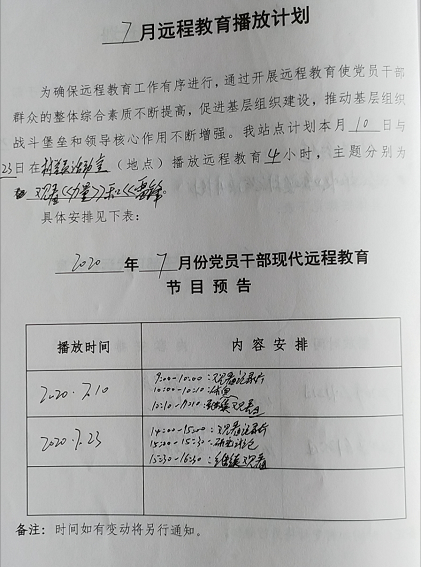 7月远程教育播放计划
为确保远程教育工作有序进行，通过开展远程教育使党员干部
群众的整体综合素质不断提高，促进基层组织建设，推动基层组织
战斗堡垒和领导核心作用不断增强。我站点计划本月10日与
23日在村级活动室（地点）播放远程教育4小时，主题分别为
观看《力量》和《雷锋》。
具体安排见下表：
2020年7月份党员干部现代远程教育
节目预告
播放时间 内容安排
2020.7.10 9:00-10:00：观看纪录片
10:00-10:10：休息
10:10-11:10：继续观看
2020.7.23 14:00-15:00：观看纪录片
15:00-15:30：研究讨论
15:30-16:30：继续观看
备注：时间如有变动将另行通知。